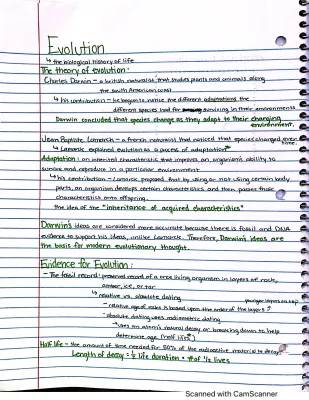 Evolution
↳ the biological history of life
The theory of evolution:
Charles Darwin - a british naturalist that studies plants and animals along
the South American coast
↳ his contribution - he began to notice the different adaptations the
different species had for surviving in their environments
Darwin concluded that species change as they adapt to their changing
environment.
Jean Baptiste Lamarck - a french naturalist that noticed that species changed over
time.
↳ Lamarck explained evolution as a process of adaptation
Adaptation: an inherited characteristic that improves an organism's ability to
survive and reproduce in a particular environment
↳ his contribution - Lamarck proposed that by using or not using certain body
parts, an organism develops certain characteristics and then passes those
characteristics onto offspring.
the idea of the "inheritance of acquired characteristics"
Darwin's ideas are considered more accurate because there is fossil and DNA
evidence to support his ideas, unlike Lamarck. Therefore, Darwin's ideas are
the basis for modern evolutionary thought.
Evidence for Evolution:
- The fossil record: preserved record of once living organism in layers of rock,
amber, ice, or tar
↳ relative vs. absolute dating
younger layers on top
- relative age of rocks is based upon the order of the layers
- absolute dating uses radiometric dating
↳ uses an atom's natural decay or breaking down to help
determine age (half life)
Half life - the amount of time needed for 50% of the radioactive material to decay
Length of decay = ½ life duration × # of ½ lives
Scanned with CamScanner